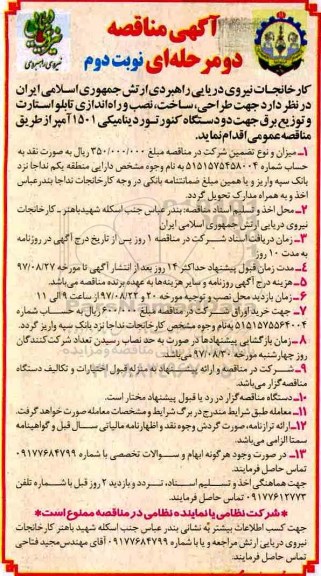 آگهی مناقصه
دو مرحله‌ای نوبت دوم
کارخانجات نیروی دریایی راهبردی ارتش جمهوری اسلامی ایران
در نظر دارد جهت طراحی، ساخت، نصب و راه اندازی تابلو استارت
و توزیع برق جهت دو دستگاه کنورتور دینامیکی ۱۵۰۱ آمپر از طریق
مناقصه عمومی اقدام نماید.
۱ـ میزان و نوع تضمین شرکت در مناقصه مبلغ ۳۵۰/۰۰۰/۰۰۰ ریال به صورت نقد به
حساب شماره ۵۱۵۱۵۷۵۴۵۸۰۰۴ به نام وجوه مشخص دارایی منطقه یکم نداجا نزد
بانک سپه واریز و یا همین مبلغ ضمانتنامه بانکی در وجه کارخانجات نداجا بندرعباس
اخذ و به همراه مدارک تحویل گردد.
۲ـ محل اخذ و تسلیم اسناد مناقصه: بندر عباس جنب اسکله شهید باهنر ـ کارخانجات
نیروی دریایی ارتش جمهوری اسلامی ایران
۳ـ زمان دریافت اسناد شرکت در مناقصه ۱ روز پس از تاریخ درج آگهی در روزنامه
به مدت ۱۰ روز
۴ـ مدت زمان قبول پیشنهاد حداکثر ۱۴ روز بعد از انتشار آگهی تا مورخه ۹۷/۰۸/۲۷
۵ـ هزینه درج آگهی روزنامه و سایر هزینه‌ها به عهده برنده مناقصه می‌باشد.
۶ـ زمان بازدید محل نصب و توجیه مورخه ۲۰ و ۹۷/۰۸/۲۲ از ساعت ۹ الی ۱۱
۷ـ جهت خرید اوراق شرکت در مناقصه مبلغ ۶۰۰/۰۰۰ ریال به حساب شماره
۵۱۵۱۵۷۵۵۶۴۰۰۴ به نام وجوه مشخص کارخانجات نداجا نزد بانک سپه واریز گردد.
۸ـ زمان بازگشایی پیشنهادها در صورت به حد نصاب رسیدن تعداد شرکت کنندگان
روز چهارشنبه مورخه ۹۷/۰۸/۳۰ می‌باشد.
۹ـ شرکت در مناقصه و ارائه پیشنهاد به منزله قبول اختیارات و تکالیف دستگاه
مناقصه گزار می‌باشد.
۱۰ـ دستگاه مناقصه گزار در رد یا قبول پیشنهاد مختار است.
۱۱ـ معامله طبق شرایط مندرج در برگ شرایط و مشخصات معامله صورت خواهد گرفت.
۱۲ـ ارائه ترازنامه، صورت گردش وجوه نقد و اظهارنامه مالیاتی سال قبل و گواهینامه
سمتا الزامی می‌باشد.
۱۳ـ در صورت وجود هر گونه ابهام و سوالات تخصصی با شماره ۰۹۱۷۷۶۸۴۷۹۹
تماس حاصل فرمایند.
جهت هماهنگی اخذ و تسلیم اسناد، تردد و بازدید ۲ روز قبل با شماره تلفن
۰۹۱۷۷۶۱۲۷۷۳ تماس حاصل فرمایند.
* شرکت نظامی یا نماینده نظامی در مناقصه ممنوع است *
جهت کسب اطلاعات بیشتر به نشانی بندر عباس جنب اسکله شهید باهنر کارخانجات
نیروی دریایی ارتش مراجعه و یا با شماره ۰۹۱۷۷۶۸۴۷۹۹ آقای مهندس مجید فتاحی
تماس حاصل فرمایند.